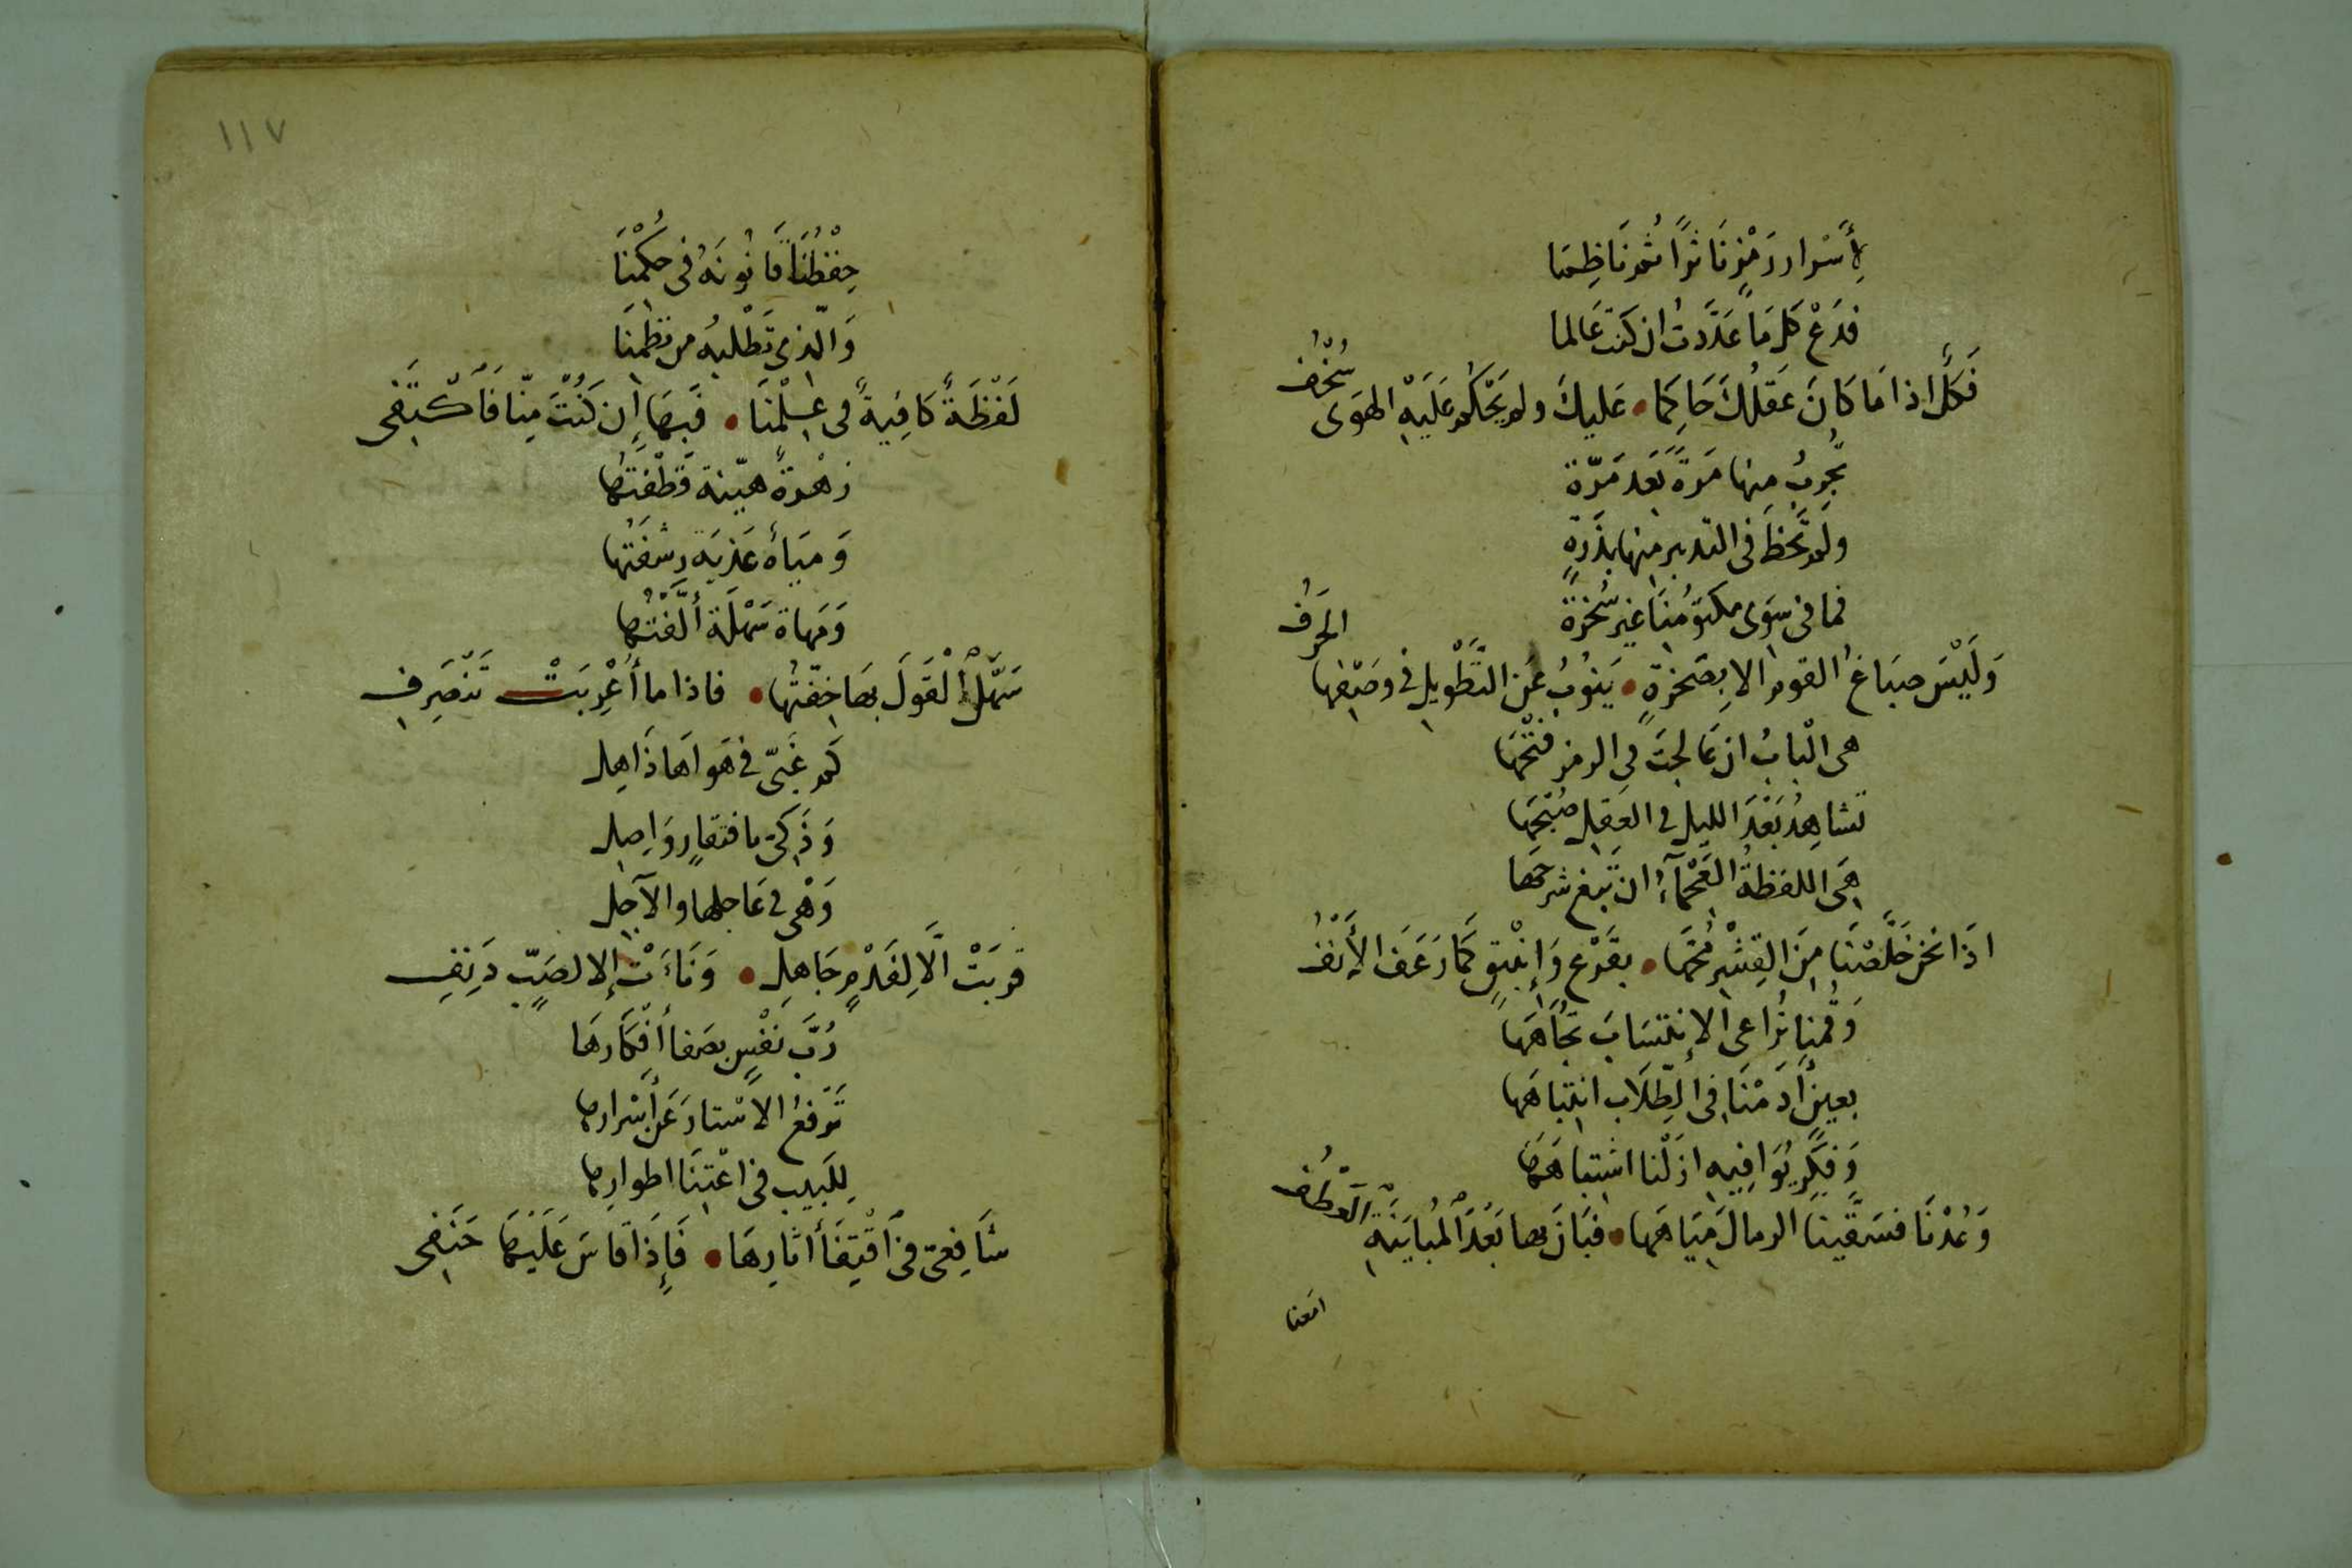 لِأَسْرار رَمْزٍ نَاثرًا ثم نَاظِمَا
فدَعْ كل مَا عَدَّدتُ ان كنتَ عَالما
فَكُلٌّ اذا مَا كانَ عَقلُكَ حَاكِمَا • عَليكَ ولم يَحْكُم عَلَيْهِ الهَوى سُخْفُ
تُجَرِّبُ منها مَرةً بَعَد مَرّة
ولم تَحْظَ في التدبير منها بذَرةٍ
فما في سِوَى مكتومُنَا غير سُخْرَةٍ
وَلَيْسَ صبَاغُ القوم الا بِصَخرةٍ • يَنوُبُ عَن التَّطْويل في وصَفِها الحَرفُ
هي الْبابُ ان عَالجتَ في الرمز فتْحَهَا
تشاهِدُ بَعْدَ الليل في العقل صُبْحَهَا
هِيَ اللفظةُ العَجْمآءُ ان تَبغ شرحَها
اذَا نحن خَلَّصْنَا مِنَ القِشْر مُحَّهَا • بقَرْعٍ وَإنبيقٍ كمَا رَعَفَ الأَنْفُ
وَقُمْنا نُراعى الإنتسَابَ تجُاهَهَا
بعينٍ أَدَمْنَا في الطِّلَاب انتباهَهَا
وَفِكْرٍ يُوَافِيه ازَلْنا اشتباهَهَا
وَعُدْنَا فسَقَّينا الرمالَ مِيَاهَهَا • فبَانَ بها بَعْدَ المُبايَنَةِ اللُّطْفُ
امعنا
١١٧
حِفْظُنَا قَانُونَهُ في حُكْمِنَا
وَالّذي تَطْلبهُ من نَظْمِنَا
لَفْظَةٌ كَافِيةٌ في عِلْمِنَا • فَبِهَا إِن كُنْتَ مِنّا فَاْكْتَفِى
زهْرةٌ هيّنة قَطَفْتُهَا
وَميَاهُ عَذبَة رشفتُها
وَمَهاة سَهْلَة أَلَّفْتُهَا
سَهْلُ الْقَولَ بهَا خِفْتُهَا • فاذا ما أُعْرِبَتْ تَنْصَرِفِ
كم غَبيّ في هَواهَا ذَاهِل
وَذَكىّ بافتقارٍ وَاصِل
وَهْى في عَاجلها والآجِل
قرُبَتْ الَّا لِفَدْمٍ جَاهِلِ • وَنَاءَتْ إلا لصَبٍّ دَنِفِ
رُبَّ نَفْسٍ بصَفا أَفْكَارهَا
تَرْفعُ الاسْتارَ عَن أَسْرارهَا
لِلَبيبٍ في اعْتِنَا اطوارِها
شَافِعىّ في اَقْتِفَا أَثارِهَا • فَإِذَا قاسَ عَلَيْهَا حَنَفِى